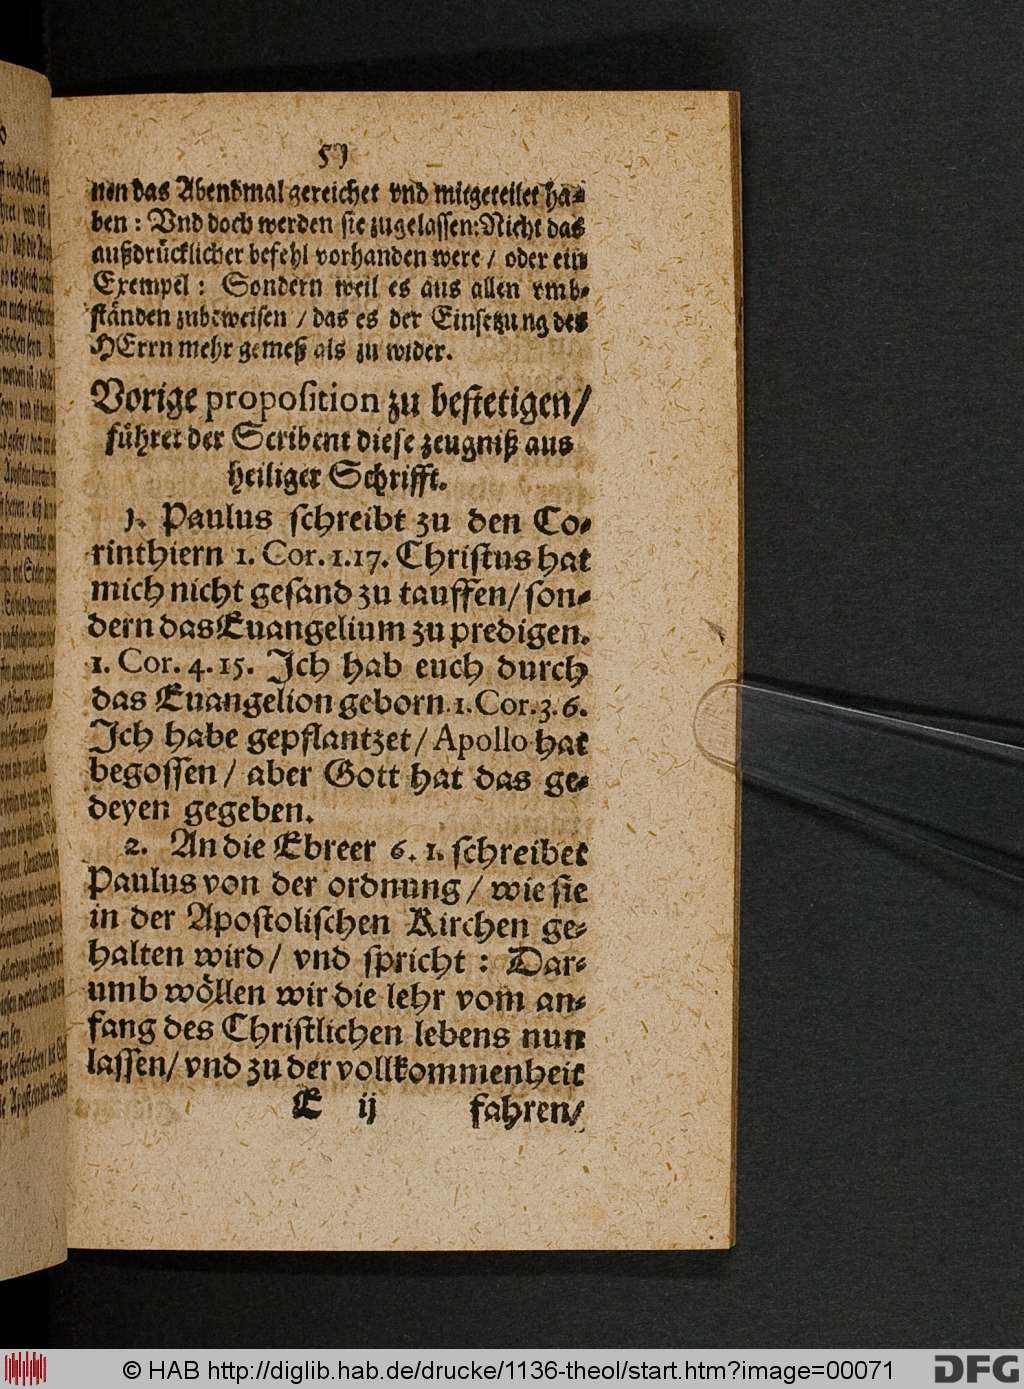 51
nen das Abendmal gereichet vnd mitgeteilet ha-
ben : Vnd doch werden sie zugelassen: Nicht das
außdrücklicher befehl vorhanden were / oder ein
Exempel : Sondern weil es aus allen vmb-
ständen zubeweisen / das es der Einsetzung des
HErrn mehr gemeß als zu wider.
Vorige proposition zu bestetigen/
führet der Scribent diese zeugniß aus
heiliger Schrifft.
1. Paulus schreibt zu den Co-
rinthiern 1. Cor. 1.17. Christus hat
mich nicht gesand zu tauffen/ son-
dern das Euangelium zu predigen.
1. Cor. 4. 15. Ich hab euch durch
das Euangelion geborn. 1. Cor. 3. 6.
Ich habe gepflantzet / Apollo hat
begossen / aber Gott hat das ge-
deyen gegeben.
2. An die Ebreer 6. 1. schreibet
Paulus von der ordnung / wie sie
in der Apostolischen Kirchen ge-
halten wird / vnd spricht : Dar-
umb wöllen wir die lehr vom an-
fang des Christlichen lebens nun
lassen/ vnd zu der vollkommenheit
E ij fahren/
© HAB http://diglib.hab.de/drucke/1136-theol/start.htm?image=00071
DFG